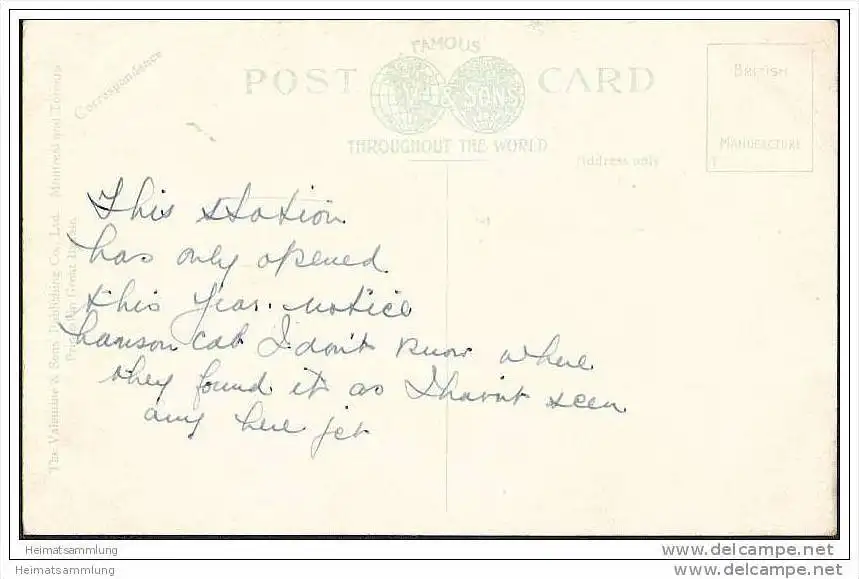 FAMOUS
POST CARD
& SONS
THROUGHOUT THE WORLD
BRITISH
MANUFACTURE
Correspondance
Address only
The Valentine & Sons Publishing Co., Ltd. Montreal and Toronto
Printed in Great Britain.
This station
has only opened
this year. notice
hanson cab I don't know where
they found it as I havnt seen
any here yet
Heimatsammlung
www.delcampe.net
Heimatsammlung
www.delcampe.net